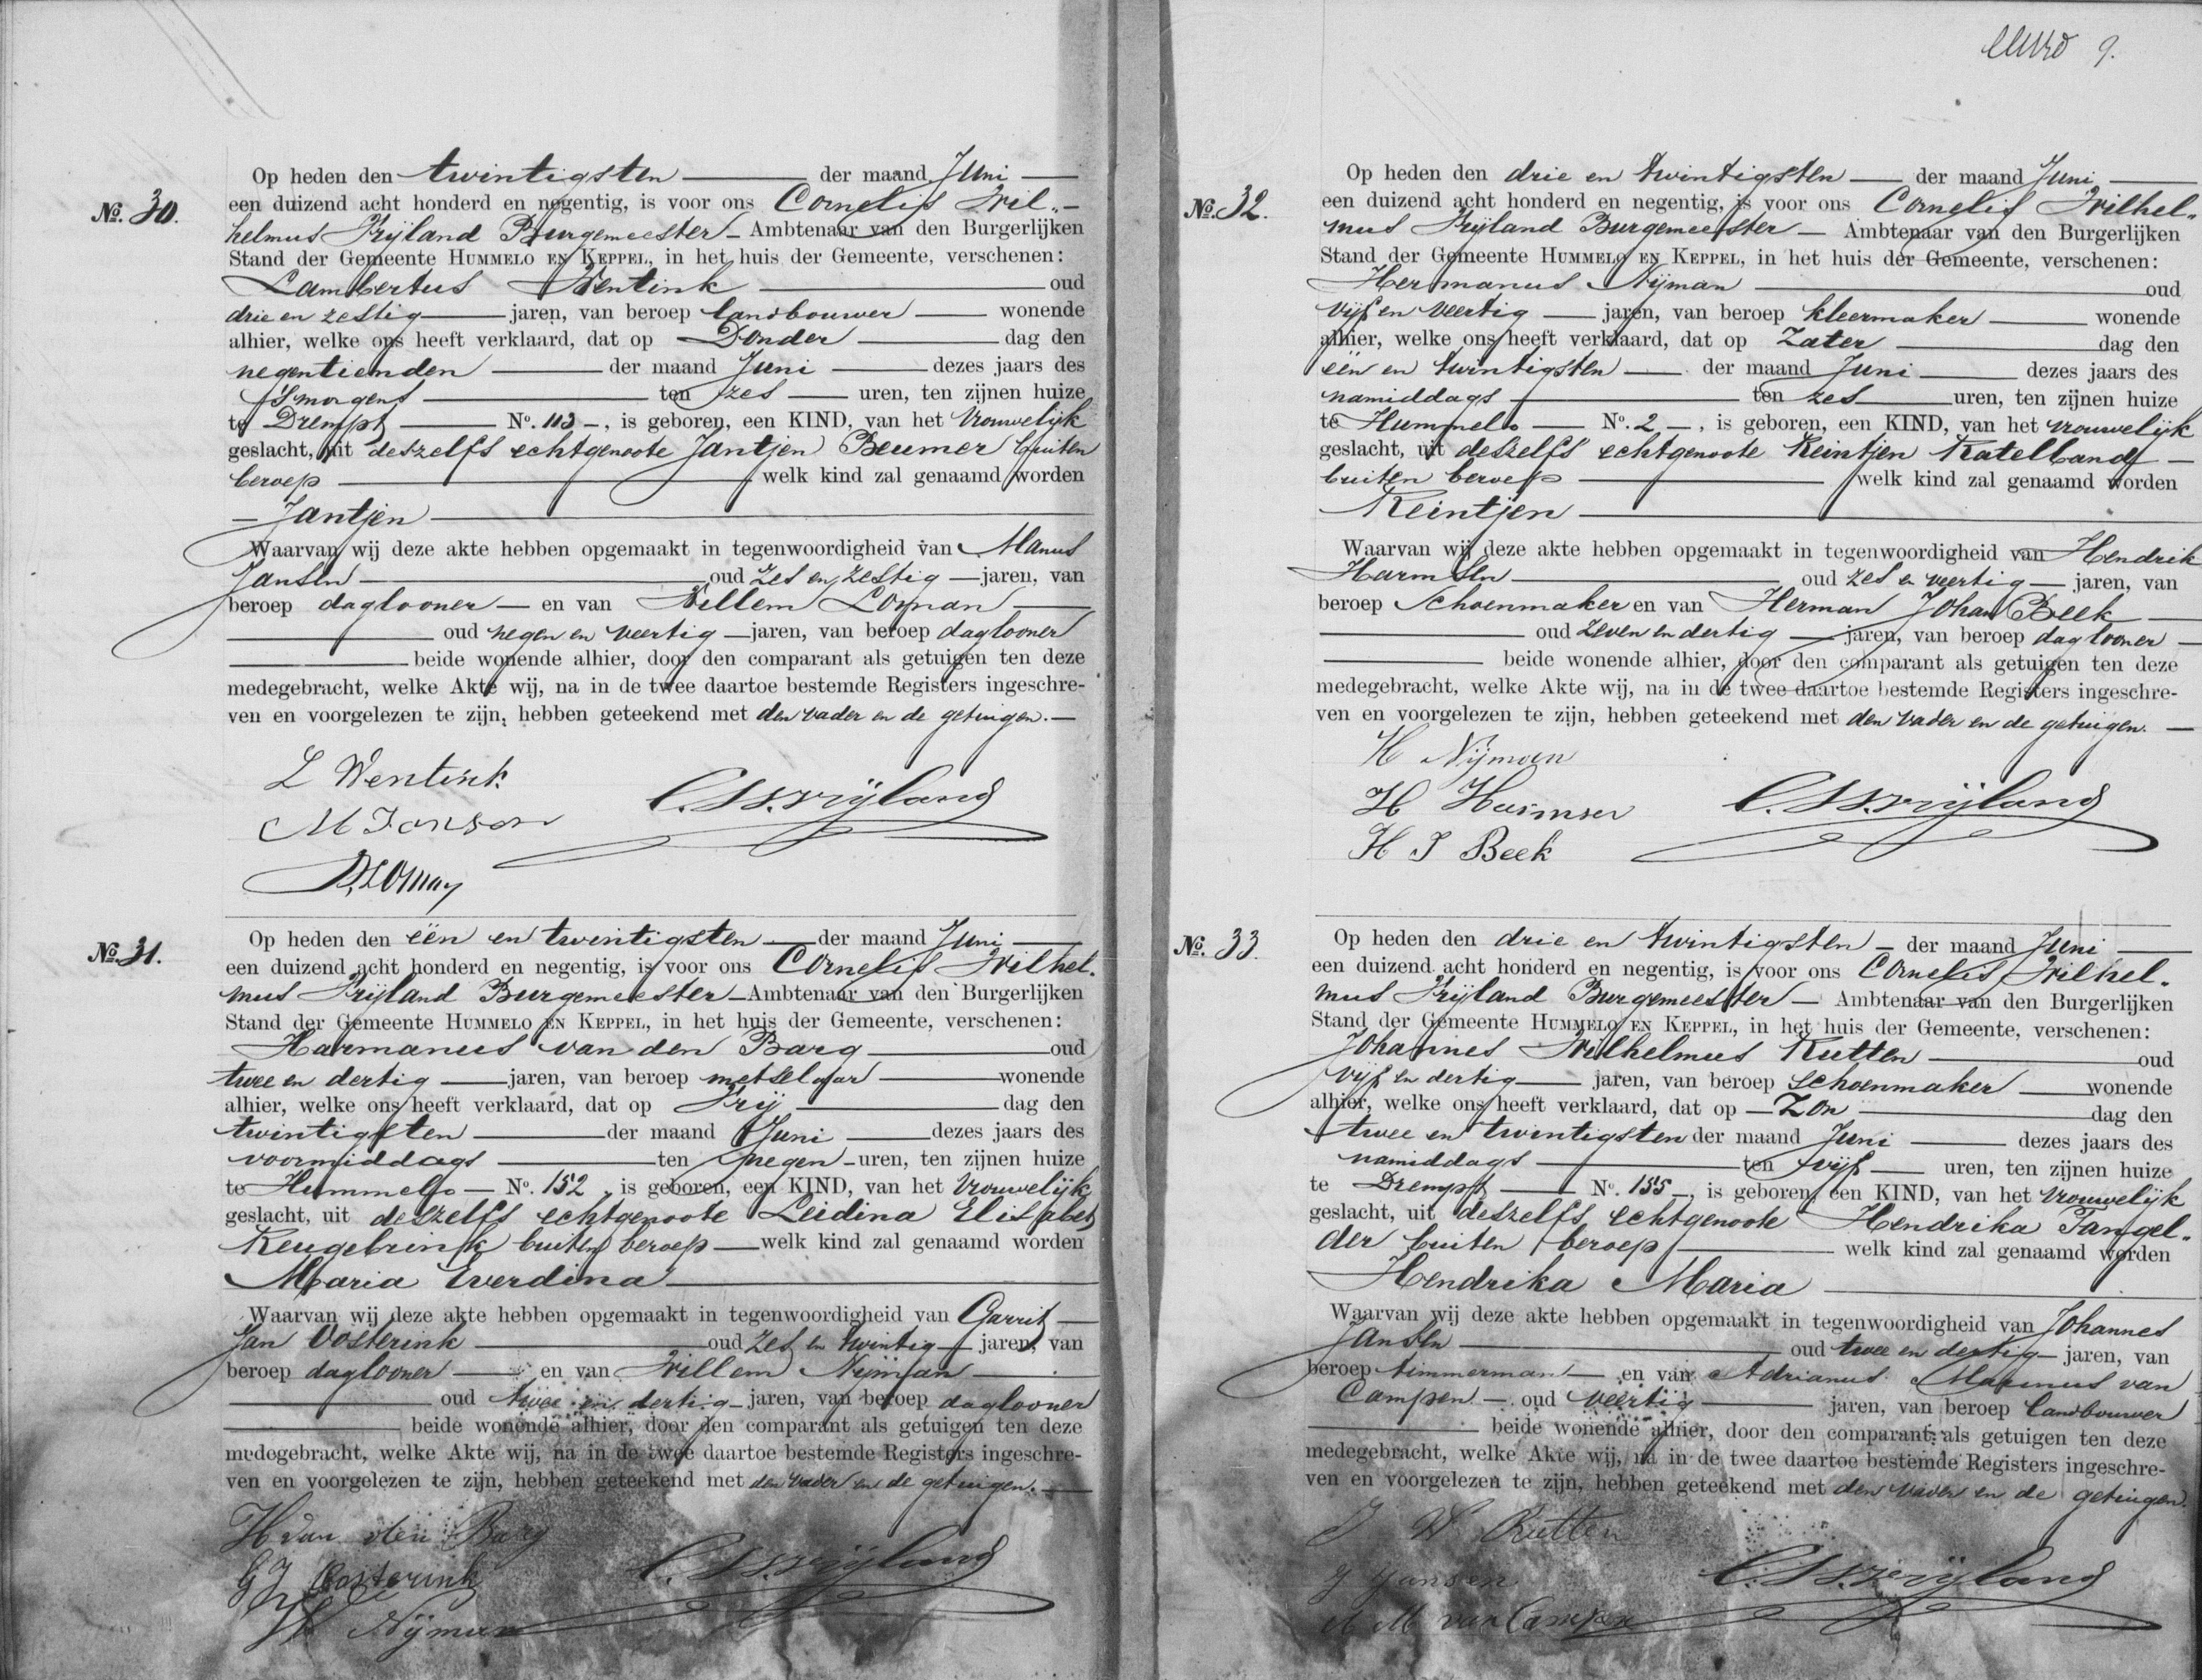 9.
No. 30.
Op heden den twintigsten der maand Juni
een duizend acht honderd en negentig, is voor ons Cornelis Wil-
helmus Vrijland Burgemeester Ambtenaar van den Burgerlijken
Stand der Gemeente HUMMELO EN KEPPEL, in het huis der Gemeente, verschenen:
Lambertus Wentink oud
drie en zestig jaren, van beroep landbouwer wonende
alhier, welke ons heeft verklaard, dat op Donder dag den
negentienden der maand Juni dezes jaars des
'smorgens ten zes uren, ten zijnen huize
te Drempt No. 113, is geboren, een KIND, van het vrouwelijk
geslacht, uit deszelfs echtgenoote Jantjen Beumer buiten
beroep welk kind zal genaamd worden
Jantjen
Waarvan wij deze akte hebben opgemaakt in tegenwoordigheid van Manus
Jansen oud zes en zestig jaren, van
beroep daglooner en van Willem Loman
oud negen en veertig jaren, van beroep daglooner
beide wonende alhier, door den comparant als getuigen ten deze
medegebracht, welke Akte wij, na in de twee daartoe bestemde Registers ingeschre-
ven en voorgelezen te zijn, hebben geteekend met den vader en de getuigen.
L Wentink
M Janson
C.W. Vrijland
W Loman
No. 31.
Op heden den één en twintigsten der maand Juni
een duizend acht honderd en negentig, is voor ons Cornelis Wilhel-
mus Vrijland Burgemeester Ambtenaar van den Burgerlijken
Stand der Gemeente HUMMELO EN KEPPEL, in het huis der Gemeente, verschenen:
Harmanus van den Barg oud
twee en dertig jaren, van beroep metselaar wonende
alhier, welke ons heeft verklaard, dat op Vrij dag den
twintigsten der maand Juni dezes jaars des
voormiddags ten negen uren, ten zijnen huize
te Hummelo No. 152, is geboren, een KIND, van het vrouwelijk
geslacht, uit deszelfs echtgenoote Leidina Elisabet
Keugebrink buiten beroep welk kind zal genaamd worden
Maria Everdina
Waarvan wij deze akte hebben opgemaakt in tegenwoordigheid van Garrit
Jan Oosterink oud zes en twintig jaren, van
beroep daglooner en van Willem Nijman
oud twee en dertig jaren, van beroep daglooner
beide wonende alhier, door den comparant als getuigen ten deze
medegebracht, welke Akte wij, na in de twee daartoe bestemde Registers ingeschre-
ven en voorgelezen te zijn, hebben geteekend met den vader en de getuigen.
H van den Barg
G J Oosterink
C.W. Vrijland
W Nijman
No. 32.
Op heden den drie en twintigsten der maand Juni
een duizend acht honderd en negentig, is voor ons Cornelis Wilhel-
mus Vrijland Burgemeester Ambtenaar van den Burgerlijken
Stand der Gemeente HUMMELO EN KEPPEL, in het huis der Gemeente, verschenen:
Hermanus Nijman oud
vijf en veertig jaren, van beroep kleermaker wonende
alhier, welke ons heeft verklaard, dat op Zater dag den
één en twintigsten der maand Juni dezes jaars des
namiddags ten zes uren, ten zijnen huize
te Hummelo No. 2, is geboren, een KIND, van het vrouwelijk
geslacht, uit deszelfs echtgenoote Reintjen Ratelband
buiten beroep welk kind zal genaamd worden
Reintjen
Waarvan wij deze akte hebben opgemaakt in tegenwoordigheid van Hendrik
Harmsen oud zes en veertig jaren, van
beroep schoenmaker en van Herman Johan Beek
oud zeven en dertig jaren, van beroep daglooner
beide wonende alhier, door den comparant als getuigen ten deze
medegebracht, welke Akte wij, na in de twee daartoe bestemde Registers ingeschre-
ven en voorgelezen te zijn, hebben geteekend met den vader en de getuigen.
H Nijman
H Harmsen
C.W. Vrijland
H J Beek
No. 33
Op heden den drie en twintigsten der maand Juni
een duizend acht honderd en negentig, is voor ons Cornelis Wilhel-
mus Vrijland Burgemeester Ambtenaar van den Burgerlijken
Stand der Gemeente HUMMELO EN KEPPEL, in het huis der Gemeente, verschenen:
Johannes Wilhelmus Rutten oud
vijf en dertig jaren, van beroep schoenmaker wonende
alhier, welke ons heeft verklaard, dat op Zon dag den
twee en twintigsten der maand Juni dezes jaars des
namiddags ten vijf uren, ten zijnen huize
te Drempt No. 155, is geboren, een KIND, van het vrouwelijk
geslacht, uit deszelfs echtgenoote Hendrika Tangel-
der buiten beroep welk kind zal genaamd worden
Hendrika Maria
Waarvan wij deze akte hebben opgemaakt in tegenwoordigheid van Johannes
Jansen oud twee en dertig jaren, van
beroep timmerman en van Adrianus Marinus van
Campen oud veertig jaren, van beroep landbouwer
beide wonende alhier, door den comparant als getuigen ten deze
medegebracht, welke Akte wij, na in de twee daartoe bestemde Registers ingeschre-
ven en voorgelezen te zijn, hebben geteekend met den vader en de getuigen.
J W Rutten
J Jansen
C.W. Vrijland
A M van Campen